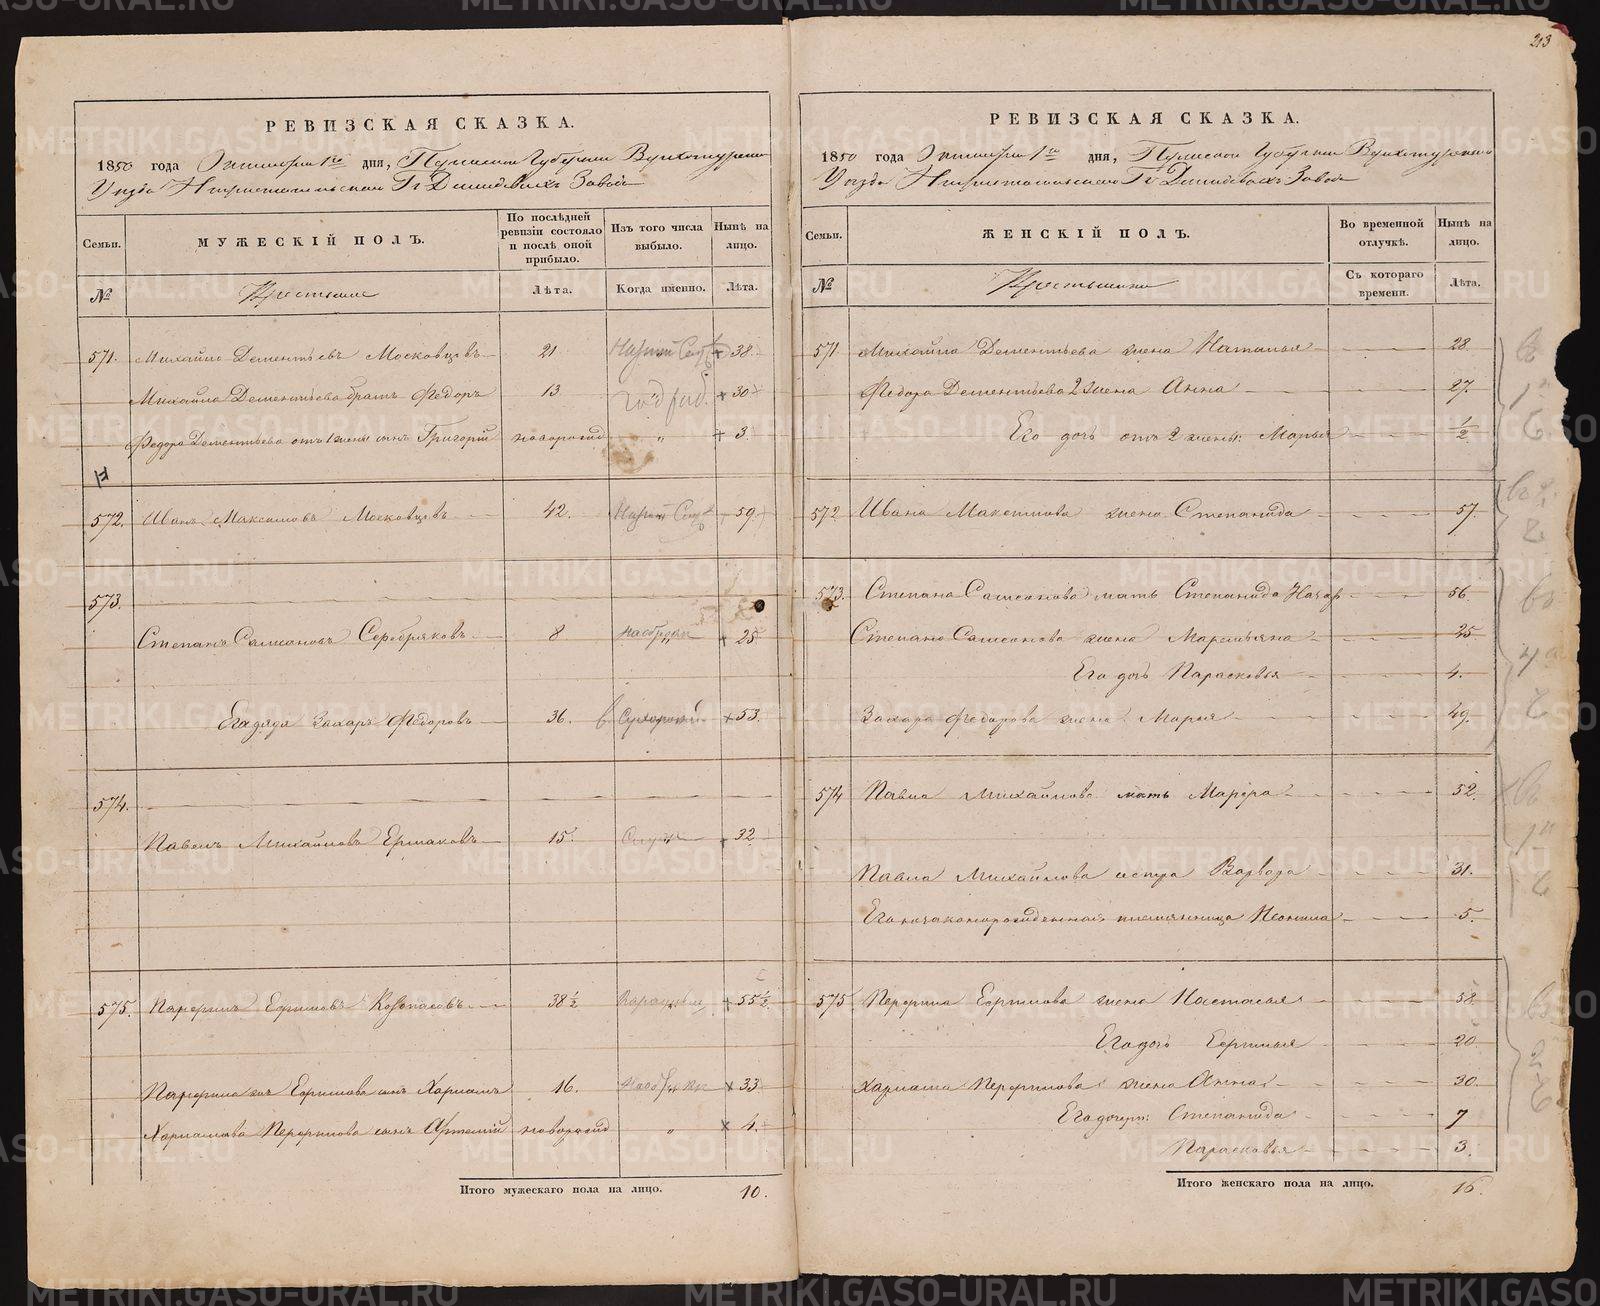 213
РЕВИЗСКАЯ СКАЗКА.
1850 года Октября 1го дня, Пермской Губернии Верхотурского
Уезда Нижнетагильского Гг Демидовыхъ Завода
Семьи. МУЖЕСКІЙ ПОЛЪ. По послѣдней ревизіи состояло и послѣ оной прибыло. Изъ того числа выбыло. Нынѣ на лицо.
№ Крестьяне Лѣта. Когда именно. Лѣта.
571. Михайло Дементьевъ Московцовъ 21 38
Михайла Дементьева братъ Федоръ 13 30
Федора Дементьева отъ 1 жены сынъ Григорій новорожд " 3.
572. Иванъ Максимовъ Московцовъ 42. 59.
573.
Степанъ Самсоновъ Серебряковъ 8 25
Его дядя Захаръ Федоровъ 36. 53.
574.
Павелъ Михайловъ Ермаковъ 15. 32
575. Парфенъ Ефимовъ 38 ½ 55 ½
Ефимова сынъ Харламъ 16. 33
сынъ Артемій новорожд " 4.
Итого мужескаго пола на лицо. 10.
РЕВИЗСКАЯ СКАЗКА.
1850 года Октября 1го дня, Пермской Губернии Верхотурского
Уезда Нижнетагильского Гг Демидовыхъ Завода
Семьи. ЖЕНСКІЙ ПОЛЪ. Во временной отлучкѣ. Нынѣ на лицо.
№ Крестьянки Съ котораго времени. Лѣта.
571 Михайла Дементьева жена Наталья 28
Федора Дементьева 2 жена Анна 27.
Его дочь отъ 2 жены: Марья ½
572 Ивана Максимова жена Степанида 57.
573. Степана Самсонова мать Степанида 56
Степана Самсонова жена Маремьяна 25
Его дочь Парасковья 4.
Захара Федорова жена Марья 49.
574 Павла Михайлова мать Марфа 52.
Павла Михайлова сестра Варвара 31.
Его незаконорожденная племянница 5.
575. Ефимова жена Настасья 58.
Его дочь 20
Харлама жена Анна 30.
Его дочери: Степанида 7
Парасковья 3.
Итого женскаго пола на лицо. 16.
METRIKI.GASO-URAL.RU